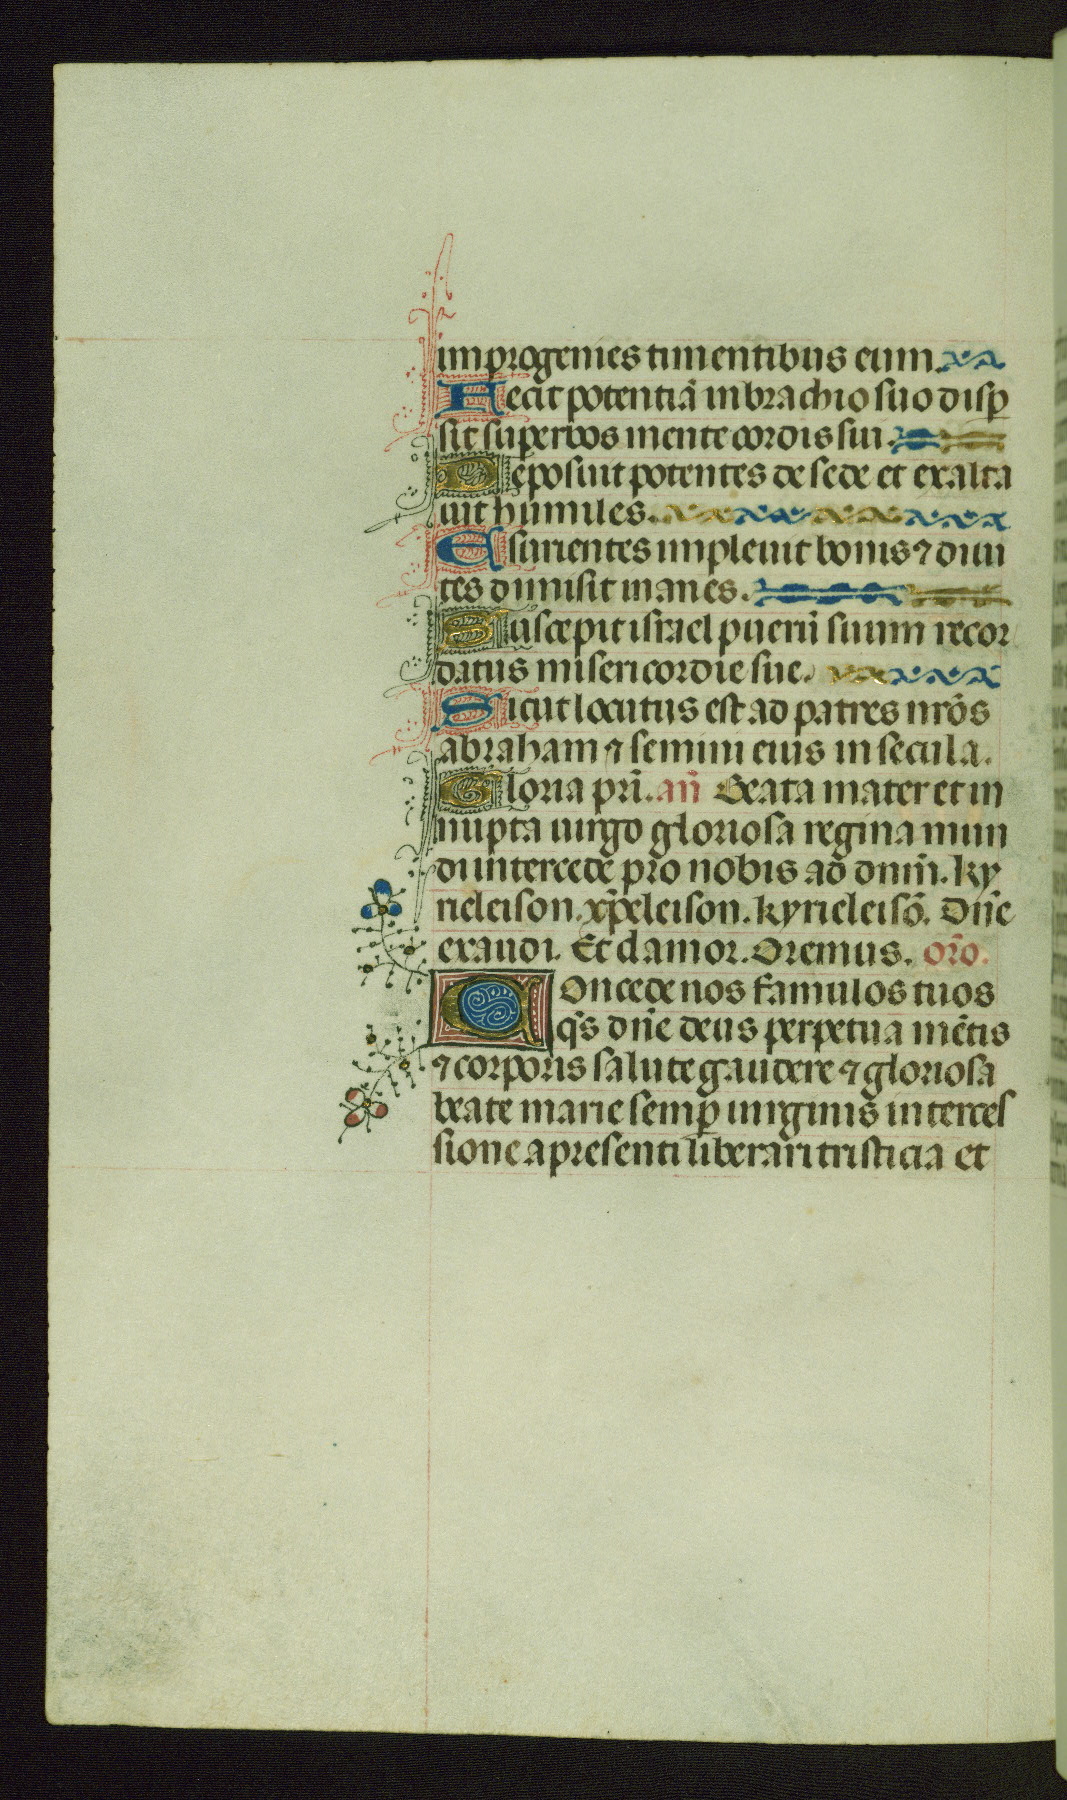 im progenies timentibus eum.
Fecit potentiā in brachio suo disp̄
sit superbos mente cordis sui.
Deposuit potentes de sede et exalta
uit humiles.
Esurientes impleuit bonis ⁊ diui
tes dimisit inanes.
Suscepit israel puerū suum recor
datus misericordie sue.
Sicut locutus est ad patres nr̄os
abraham ⁊ semini eius in secula.
Gloria pr̄i. an̄ Beata mater et in
nupta uirgo gloriosa regina mun
di intercede pro nobis ad dnm̄. ky
rieleison. xp̄eleison. kyrieleisō. Dn̄e
exaudi. Et clamor. Oremus. or̄o.
Concede nos famulos tuos
qs̄ dn̄e deus perpetua mētis
⁊ corporis salute gaudere ⁊ gloriosa
beate marie semp̄ uirginis interces
sione a presenti liberari tristicia et